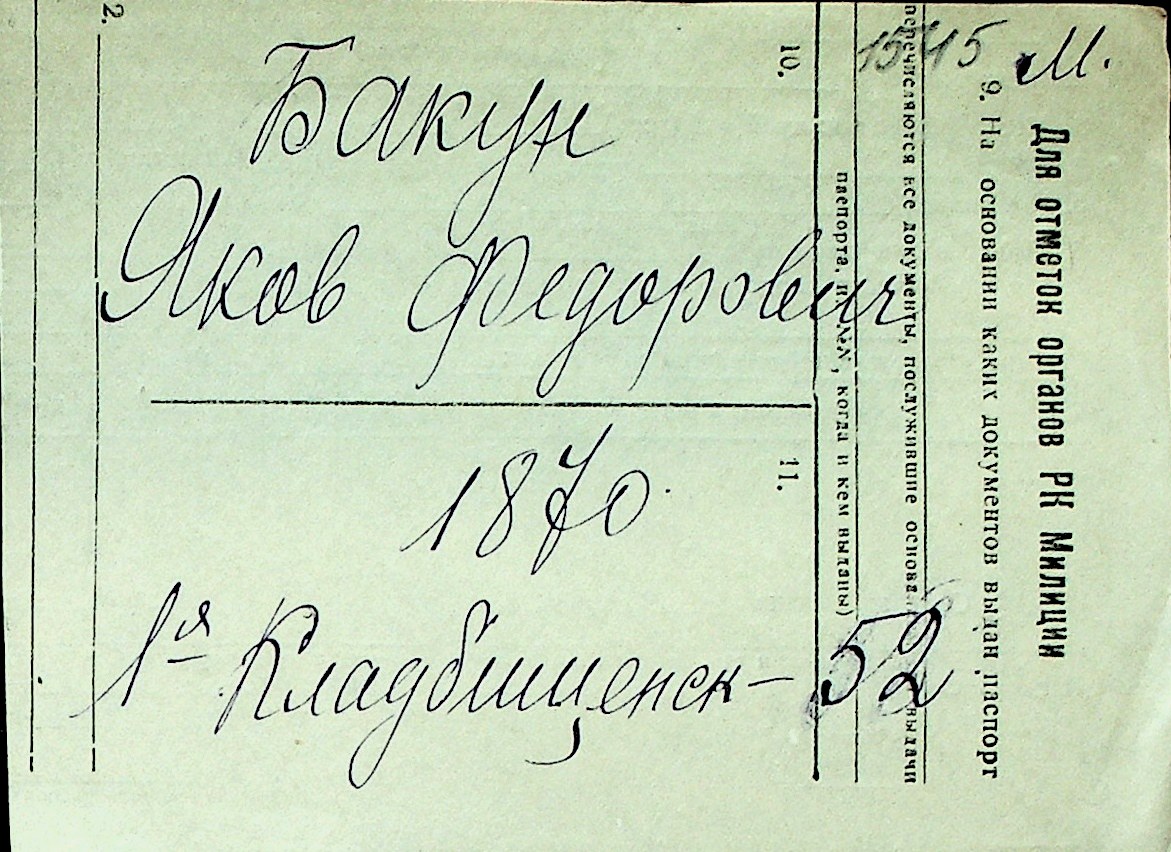 15415 М.
Бакун
Яков Федорович
1870
1я Кладбищенск - 52
Для отметок органов РК Милиции
9. На основании каких документов выдан паспорт
перечисляются все документы, послужившие основа выдачи
паспорта, и №№, когда и кем выданы)
10.
11.
2.